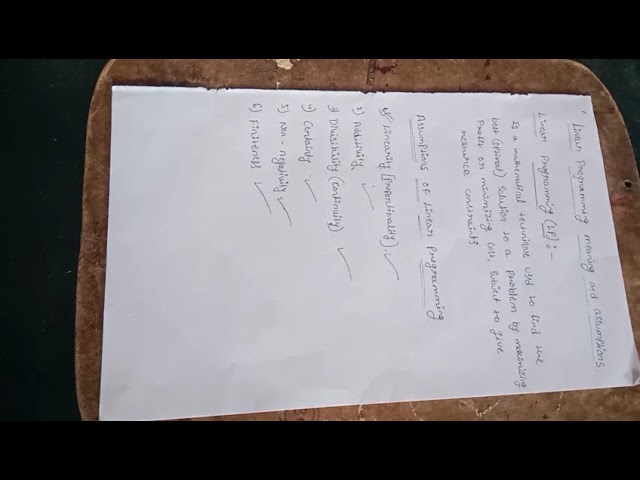 Linear Programming meaning and assumptions.
Linear Programming (LP) :-
Is a mathematical technique used to find the
best (optimal) solution to a problem by maximizing
Profit or minimizing cost, subject to give
resource constraints
Assumptions of Linear Programming
1) Linearity [Proportionality].
2) Additivity
3) Divisibility (Continuity)
4) Certainty
5) Non-negativity
6) Finiteness